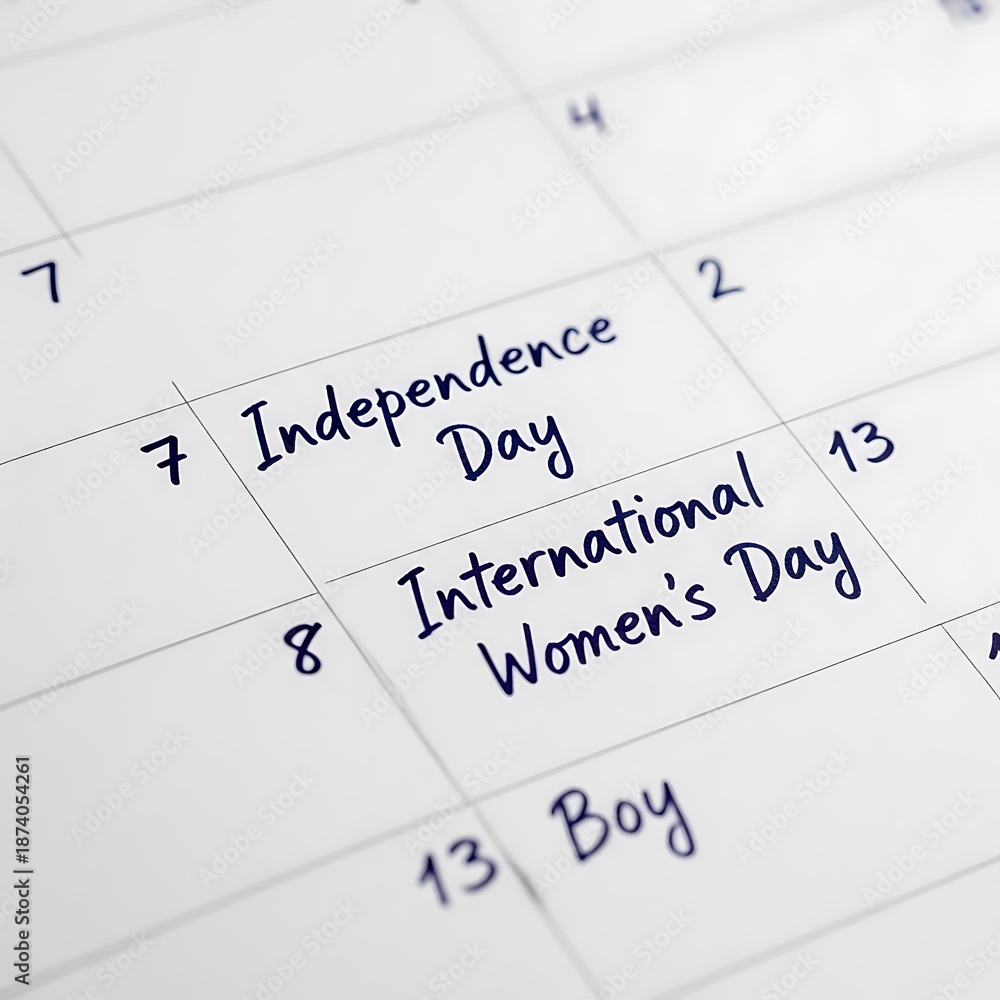 4
7
2
Independence
Day
7
13
International
Women's Day
8
Boy
13
Adobe Stock | #1874054261